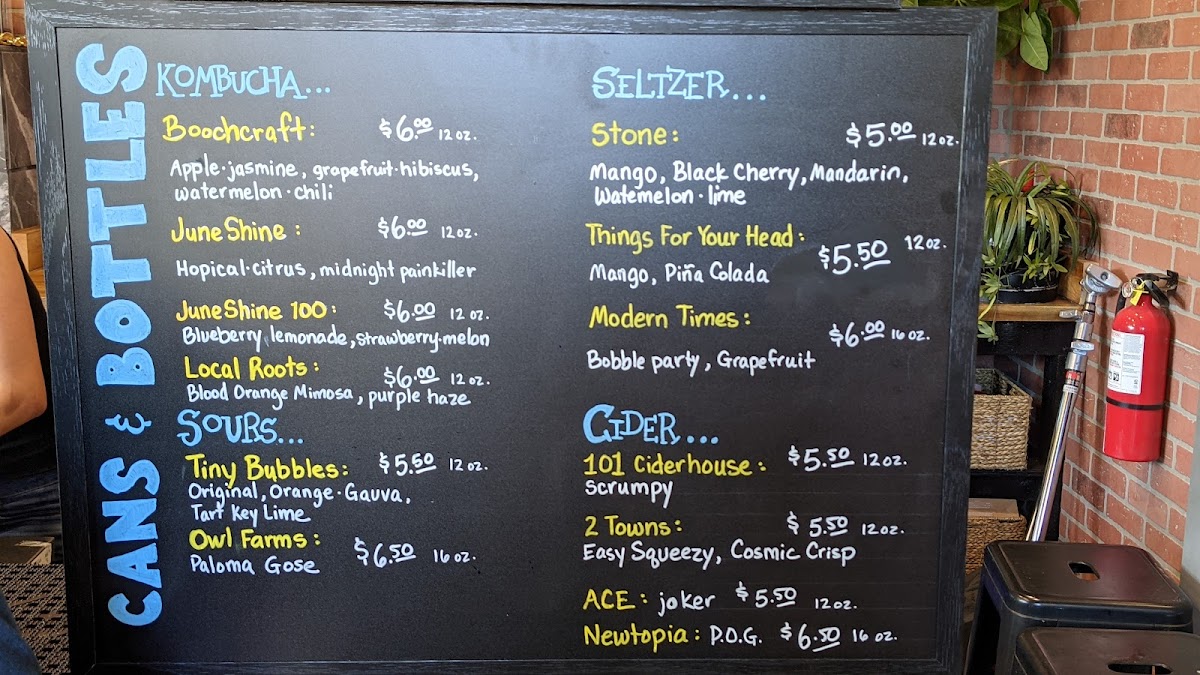 CANS & BOTTLES
KOMBUCHA...
Boochcraft: $6.00 12 oz.
Apple·jasmine, grapefruit·hibiscus,
watermelon·chili
JuneShine: $6.00 12 oz.
Hopical·citrus, midnight painkiller
JuneShine 100: $6.00 12 oz.
Blueberry lemonade, strawberry·melon
Local Roots: $6.00 12 oz.
Blood Orange Mimosa, purple haze
SOURS...
Tiny Bubbles: $5.50 12 oz.
Original, Orange·Gauva,
Tart Key Lime
Owl Farms: $6.50 16 oz.
Paloma Gose
SELTZER...
Stone: $5.00 12 oz.
Mango, Black Cherry, Mandarin,
Watemelon·lime
Things For Your Head: $5.50 12 oz.
Mango, Piña Colada
Modern Times: $6.00 16 oz.
Bobble party, Grapefruit
CIDER...
101 Ciderhouse: $5.50 12 oz.
Scrumpy
2 Towns: $5.50 12 oz.
Easy Squeezy, Cosmic Crisp
ACE: joker $5.50 12 oz.
Newtopia: P.O.G. $6.50 16 oz.